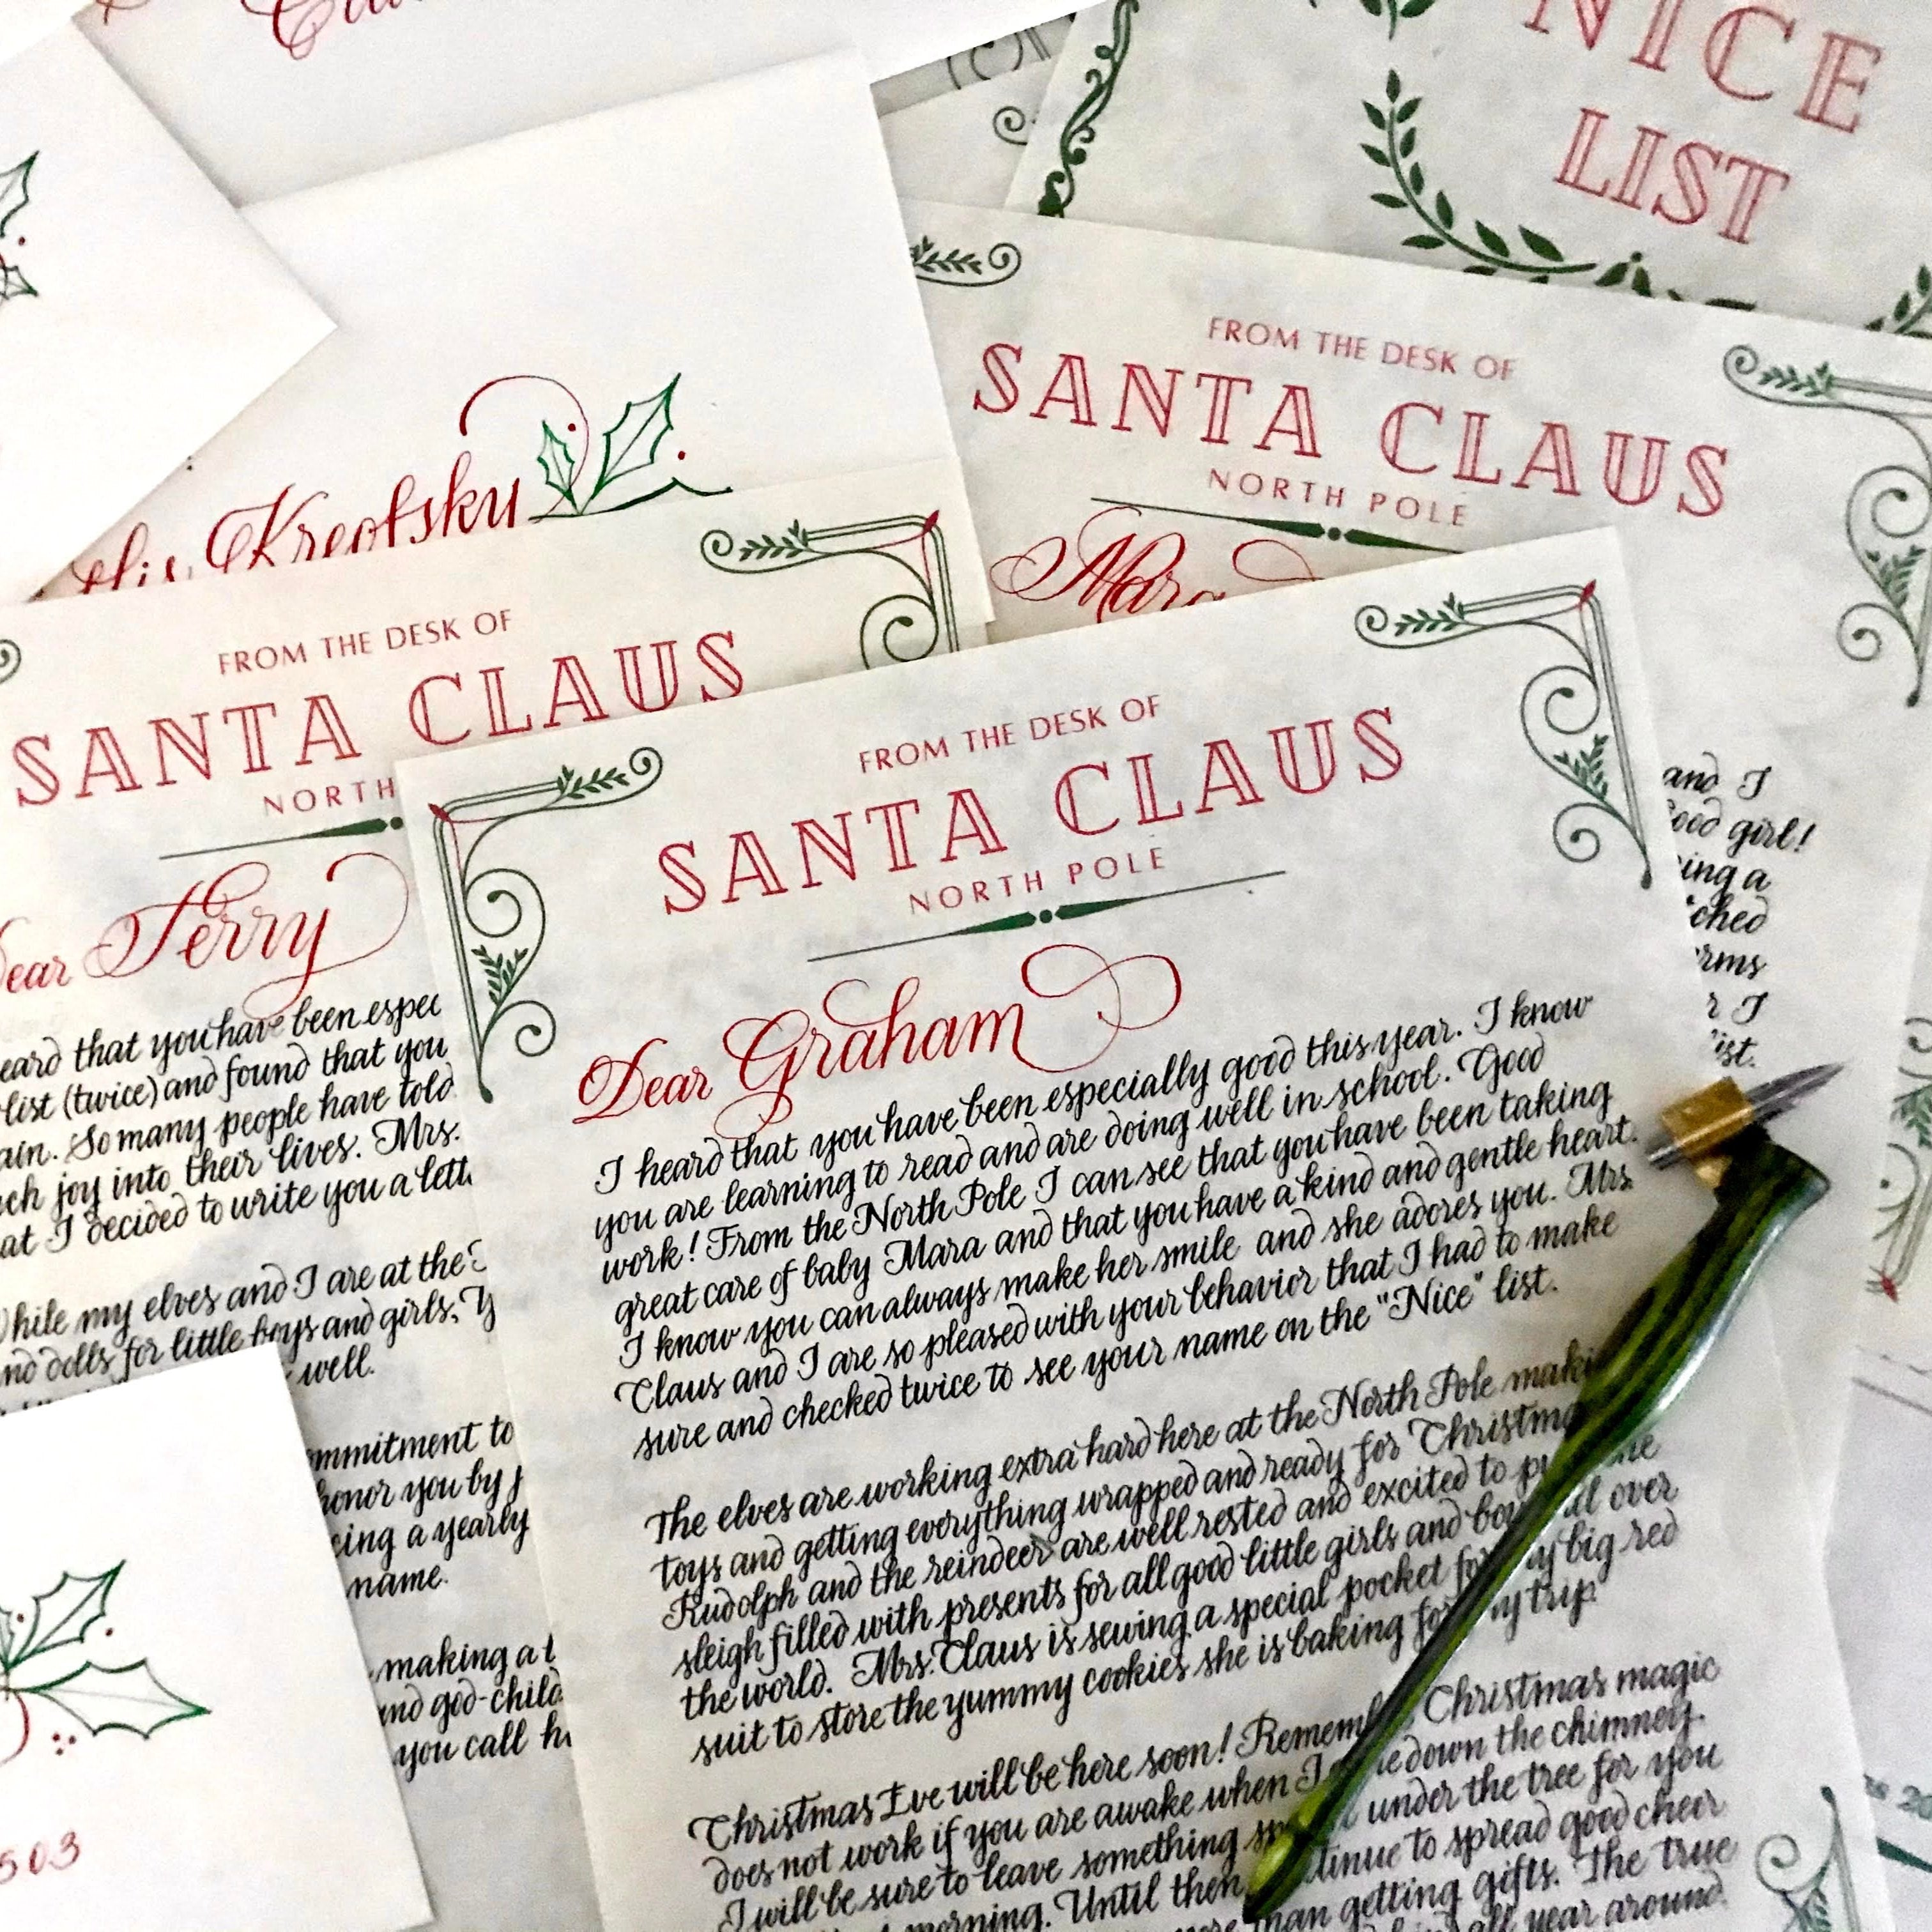 NICE
LIST
FROM THE DESK OF
SANTA CLAUS
NORTH POLE
Mara
and I
good girl!
ing a
ched
rms
r I
ist.
Kreofsky
FROM THE DESK OF
SANTA CLAUS
NORTH
Dear Terry
heard that you have been espec
list (twice) and found that you
ain. So many people have told
ch joy into their lives. Mrs.
at I decided to write you a lett
While my elves and I are at the
and dolls for little boys and girls, Y
well.
ommitment to
honor you by
cing a yearly
name.
making a t
and god-child
you call h
503
FROM THE DESK OF
SANTA CLAUS
NORTH POLE
Dear Graham
I heard that you have been especially good this year. I know
you are learning to read and are doing well in school. Good
work! From the North Pole I can see that you have been taking
great care of baby Mara and that you have a kind and gentle heart.
I know you can always make her smile and she adores you. Mrs.
Claus and I are so pleased with your behavior that I had to make
sure and checked twice to see your name on the "Nice" list.
The elves are working extra hard here at the North Pole maki
toys and getting everything wrapped and ready for Christma
Rudolph and the reindeer are well rested and excited to pu
sleigh filled with presents for all good little girls and boy all over
the world. Mrs. Claus is sewing a special pocket for my big red
suit to store the yummy cookies she is baking for my trip.
Christmas Eve will be here soon! Rememb Christmas magic
does not work if you are awake when I come down the chimney.
I will be sure to leave something sp under the tree for you
morning. Until then, tinue to spread good cheer
more than getting gifts. The true
all year around.